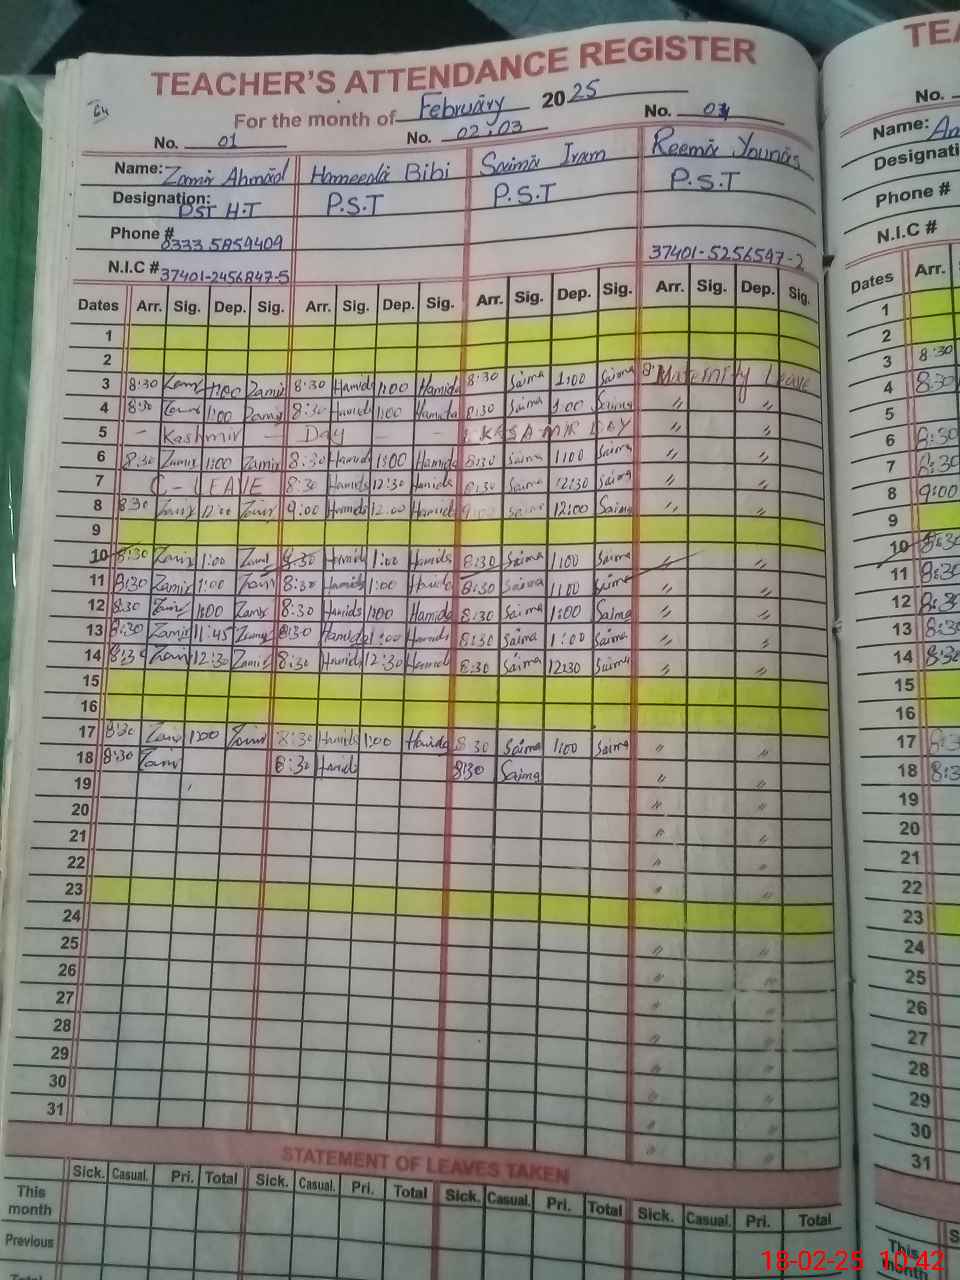 TEACHER'S ATTENDANCE REGISTER
For the month of February 2025
No. 01 No. 02:03 No. 04
Name: Zamir Ahmad Hameeda Bibi Saima Iram Reema Younas
Designation: PST H.T P.S.T P.S.T P.S.T
Phone # 0333 5859409
N.I.C # 37401-2456847-5 37401-5256597-2
Dates Arr. Sig. Dep. Sig. Arr. Sig. Dep. Sig. Arr. Sig. Dep. Sig. Arr. Sig. Dep. Sig.
1
2
3 8:30 Zamir 1:00 Zamir 8:30 Hamida 1:00 Hamida 8:30 Saima 1:00 Saima Maternity Leave
4 8:30 Zamir 1:00 Zamir 8:30 Hamida 1:00 Hamida 8:30 Saima 1:00 Saima " "
5 - Kashmir - Day - - KASAMIR DAY " "
6 8:30 Zamir 1:00 Zamir 8:30 Hamida 1:00 Hamida 8:30 Saima 1:00 Saima " "
7 C-LEAVE 8:30 Hamida 12:30 Hamida 8:30 Saima 12:30 Saima " "
8 8:30 Zamir 12:00 Zamir 9:00 Hamida 12:00 Hamida 9:00 Saima 12:00 Saima " "
9
10 8:30 Zamir 1:00 Zamir 8:30 Hamida 1:00 Hamida 8:30 Saima 1:00 Saima " "
11 8:30 Zamir 1:00 Zamir 8:30 Hamida 1:00 Hamida 8:30 Saima 1:00 Saima " "
12 8:30 Zamir 1:00 Zamir 8:30 Hamida 1:00 Hamida 8:30 Saima 1:00 Saima " "
13 8:30 Zamir 11:45 Zamir 8:30 Hamida 1:00 Hamida 8:30 Saima 1:00 Saima " "
14 8:30 Zamir 12:30 Zamir 8:30 Hamida 12:30 Hamida 8:30 Saima 12:30 Saima " "
15
16
17 8:30 Zamir 1:00 Zamir 8:30 Hamida 1:00 Hamida 8:30 Saima 1:00 Saima " "
18 8:30 Zamir 8:30 Hamida 8:30 Saima " "
19 " "
20 " "
21 " "
22 " "
23
24 " "
25 " "
26 " "
27 " "
28 " "
29 " "
30 " "
31 " "
STATEMENT OF LEAVES TAKEN
Sick. Casual. Pri. Total Sick. Casual. Pri. Total Sick. Casual. Pri. Total Sick. Casual. Pri. Total
This month
Previous
Total
No.
Name:
Phone #
N.I.C #
Dates Arr.
1
2
3 8:30
4 8:30
5
6 8:30
7 8:30
8 9:00
9
10 8:30
11 8:30
12 8:30
13 8:30
14 8:30
15
16
17 8:30
18 8:30
19
20
21
22
23
24
25
26
27
28
29
30
31
This month
18-02-25 10:42